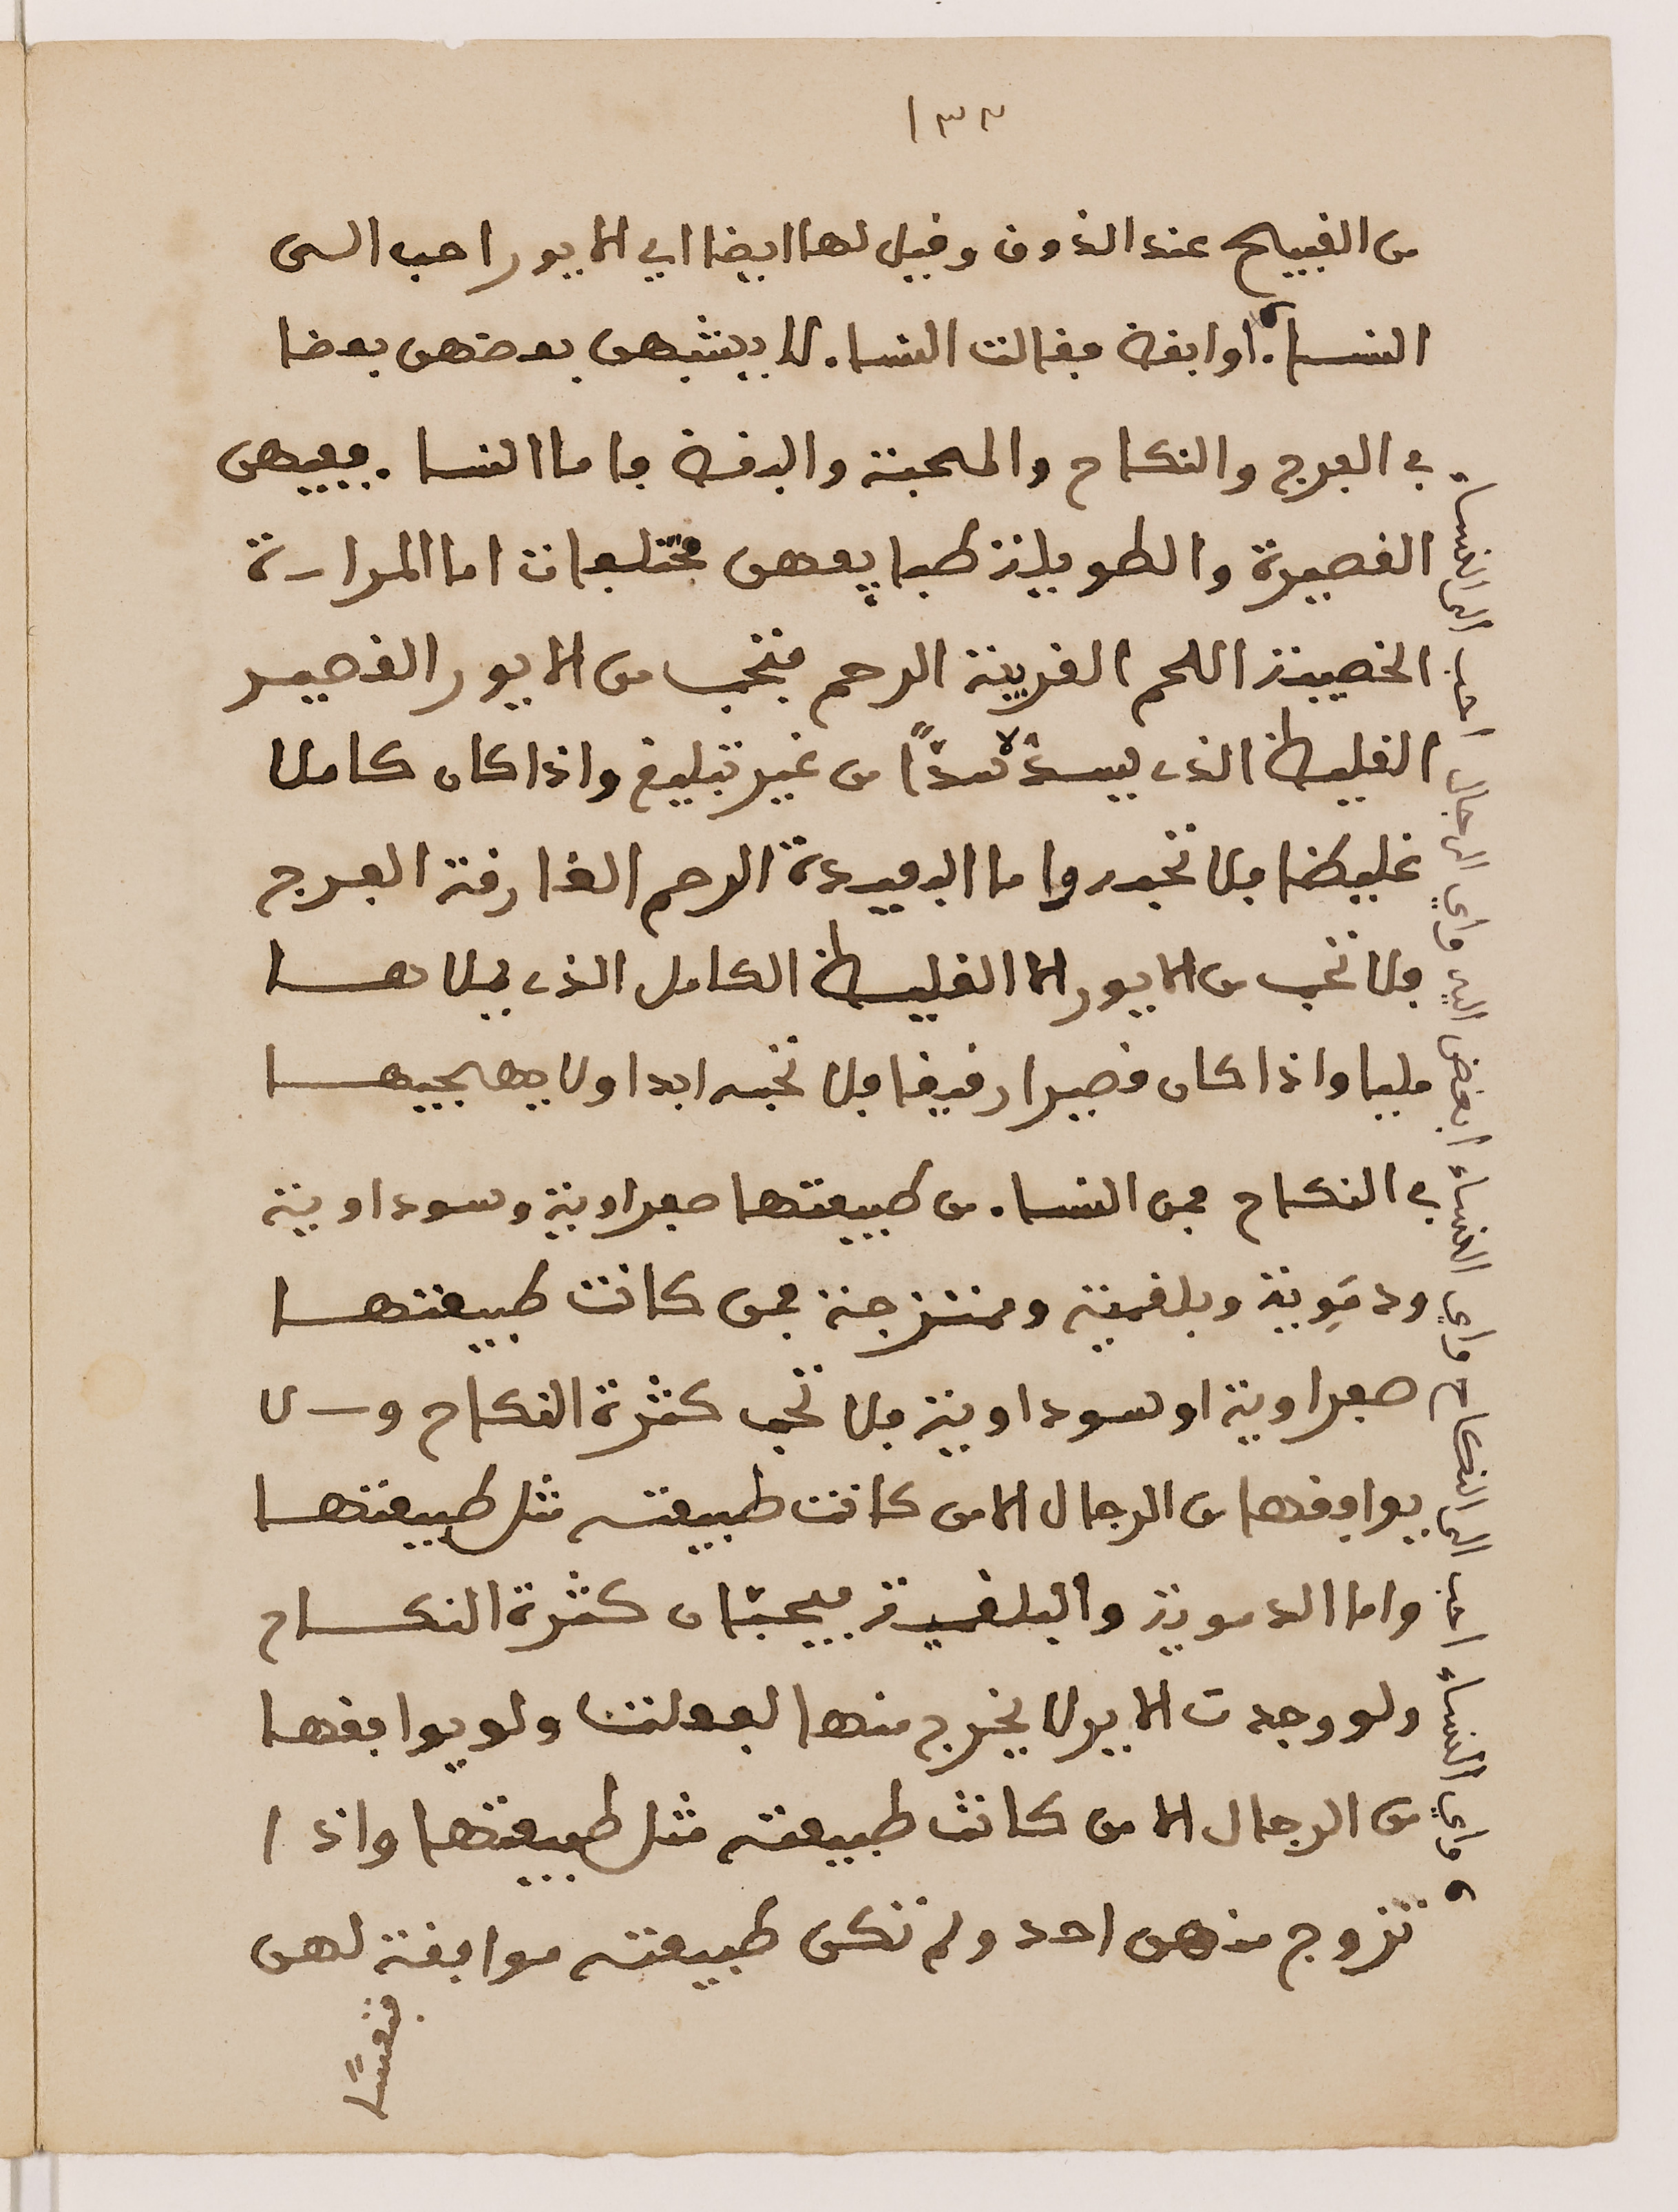 ١٣٢
من القبيح عند الذوق وقيل لها ايضا اي الايور احب الى
النساء اوابقة فقالت النساء لا يشبهن بعضهن بعضا
في الفرج والنكاح والمحبة والبغض فاما النساء ففيهن
القصيرة والطويلة طبايعهن مختلفات اما المرارة
الخصيبة اللحم القريبة الرحم فتحب من الايور القصير
الغليظ الذي يسده سدًّا من غير تبليغ واذا كان كاملا
غليظا فلا تحبه واما البعيدة الرحم الغارقة الفرج
فلا تحب من الايور الا الغليظ الكامل الذي يملاها
مليا واذا كان قصيرا رقيقا فلا تحبه ابدا ولا يعجبها
في النكاح فمن النساء من طبيعتها صفراوية وسوداوية
ودمَوِية وبلغمية وممتزجة فمن كانت طبيعتها
صفراوية او سوداوية فلا تحب كثرة النكاح ولا
يوافقها من الرجال الا من كانت طبيعته مثل طبيعتها
واما الدموية والبلغمية فيحبّان كثرة النكاح
ولو وجدت الاير لا يخرج منها لفعلت ولو يوافقها
من الرجال الا من كانت طبيعته مثل طبيعتها واذا
تزوج منهن احد ولم تكن طبيعته موافقة لهن
تعسًا
واي النساء احب الى النكاح واي النساء ابغض اليه واي الرجال احب الى النساء